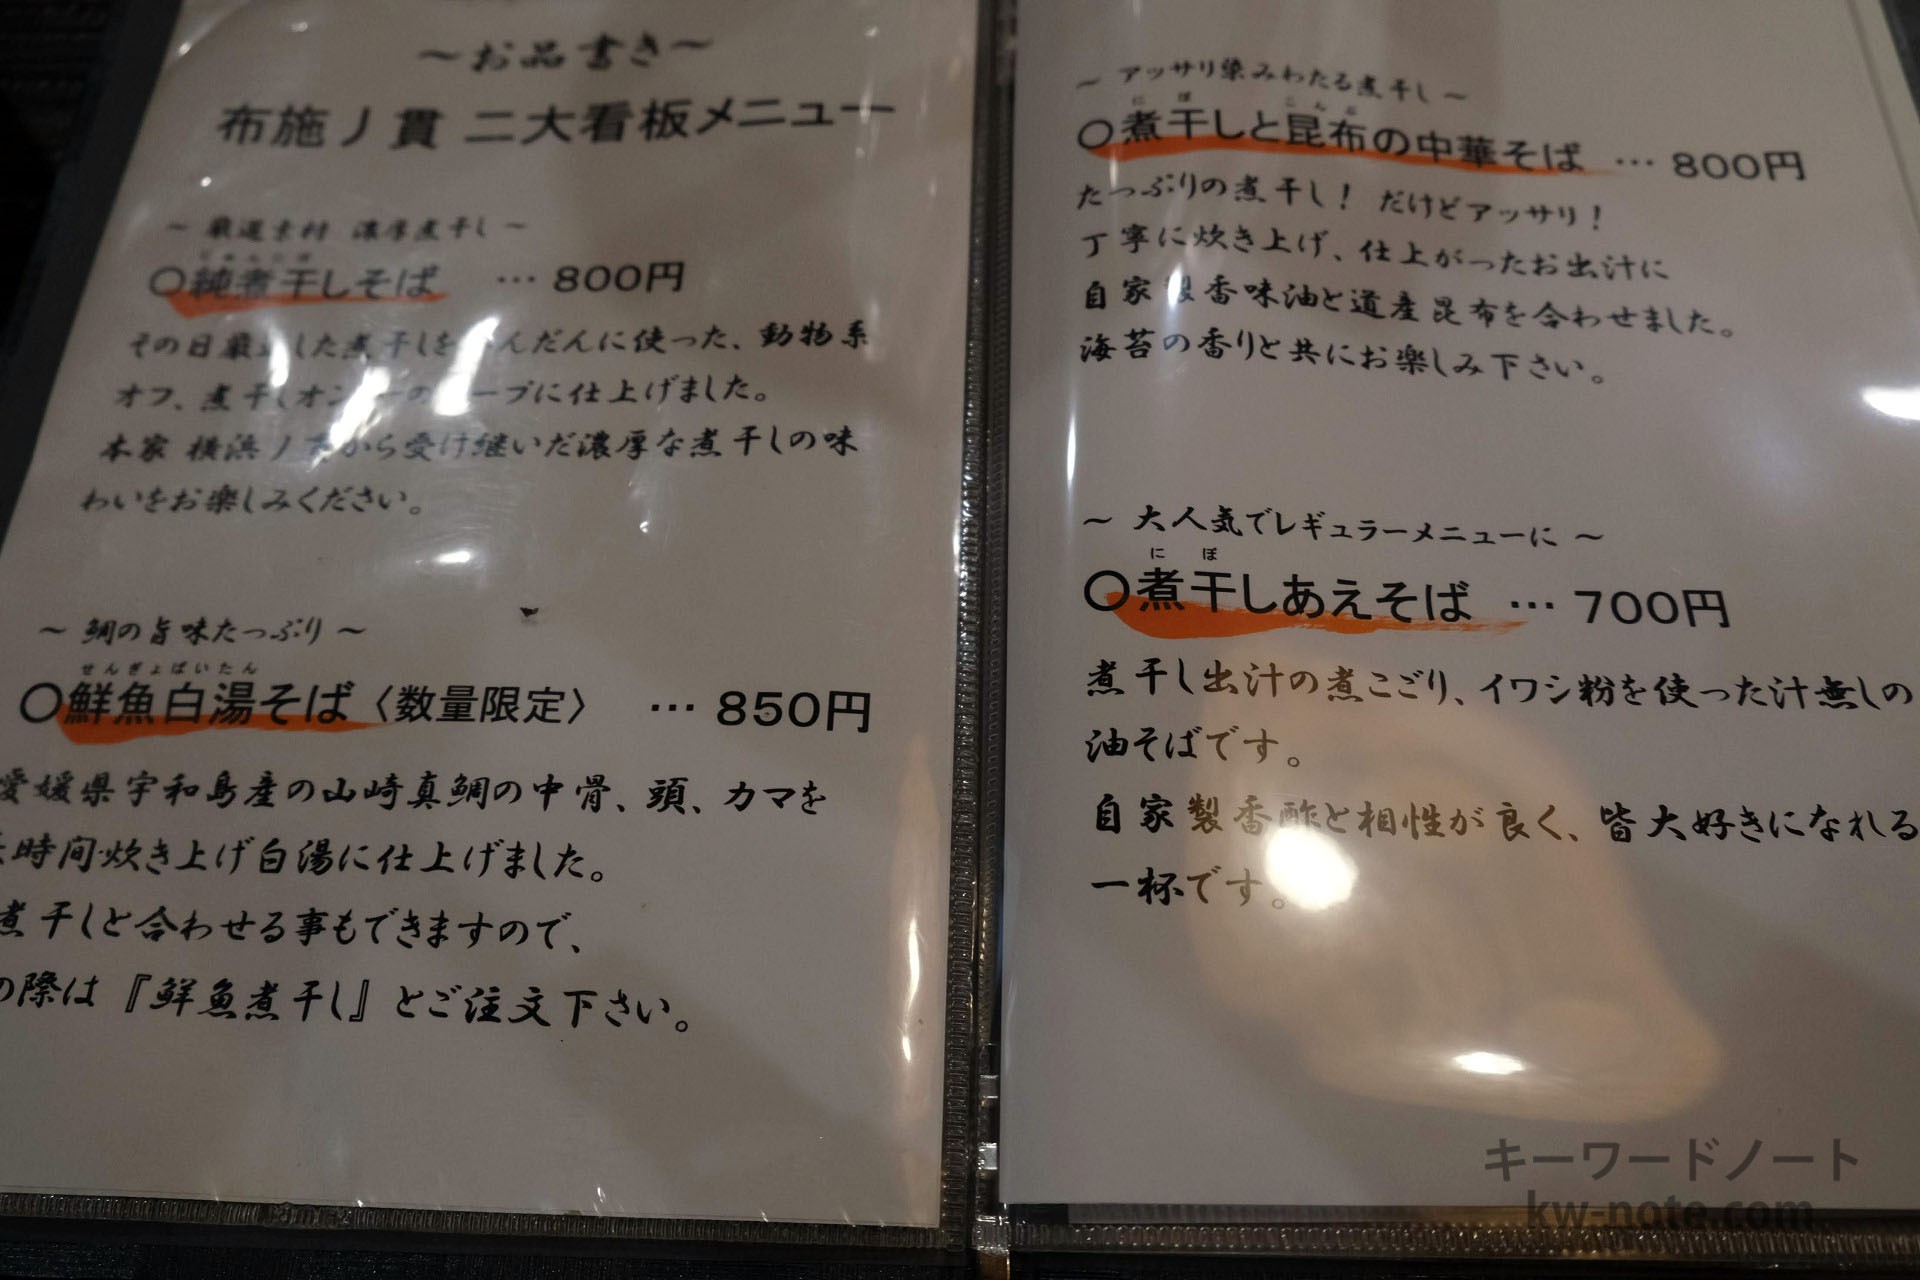 ～お品書き～
布施ノ貫 二大看板メニュー
～ 厳選素材 濃厚煮干し ～
じゅんにぼ
〇純煮干しそば … 800円
その日厳 した煮干しを んだんに使った、動物系
オフ、煮干しオン ープに仕上げました。
本家 横浜ノ から受け継いだ濃厚な煮干しの味
わいをお楽しみください。
～ 鯛の旨味たっぷり ～
せんぎょぱいたん
〇鮮魚白湯そば〈数量限定〉 … 850円
愛媛県宇和島産の山崎真鯛の中骨、頭、カマを
時間炊き上げ白湯に仕上げました。
煮干しと合わせる事もできますので、
の際は『鮮魚煮干し』とご注文下さい。
～ アッサリ染みわたる煮干し ～
にぼ こんぶ
〇煮干しと昆布の中華そば … 800円
たっぷりの煮干し！ だけどアッサリ！
丁寧に炊き上げ、仕上がったお出汁に
自家製香味油と道産昆布を合わせました。
海苔の香りと共にお楽しみ下さい。
～ 大人気でレギュラーメニューに ～
にぼ
〇煮干しあえそば … 700円
煮干し出汁の煮こごり、イワシ粉を使った汁無しの
油そばです。
自家製香酢と相性が良く、皆大好きになれる
一杯です。
キーワードノート
kw-note.com